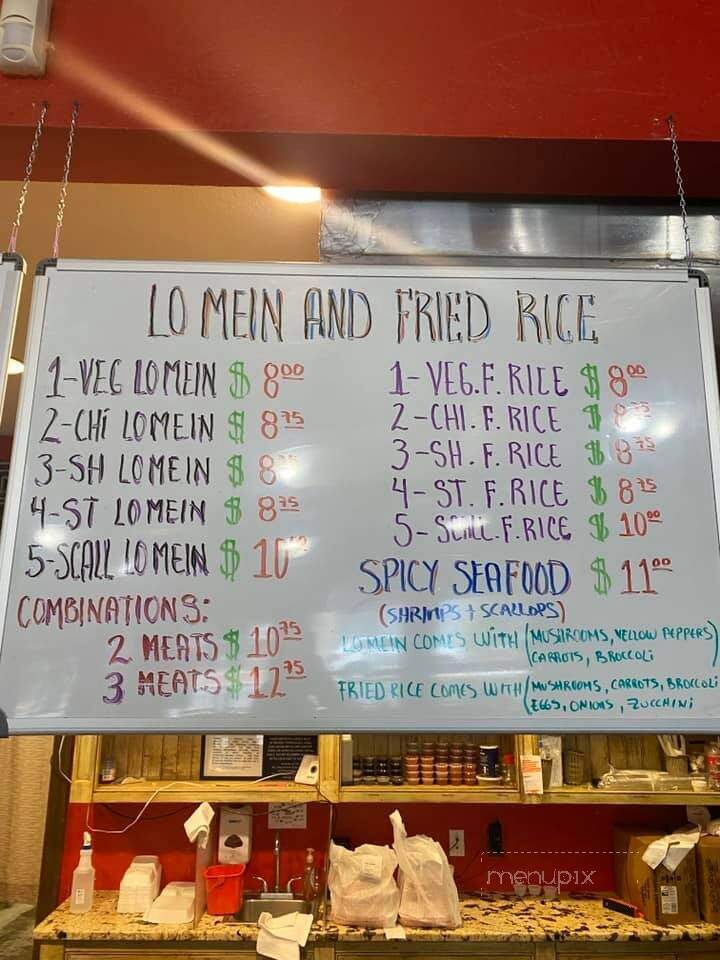 LO MEIN AND FRIED RICE
1-VEG LOMEIN $ 8.00
2-CHi LOMEIN $ 8.75
3-SH LOMEIN $ 8
4-ST LOMEIN $ 8.75
5-SCALL LOMEIN $ 10
COMBINATIONS:
2 MEATS $ 10.75
3 MEATS $ 12.75
1-VEG.F. RICE $ 8.00
2-CHI. F. RICE $ 8.75
3-SH. F. RICE $ 8.75
4-ST. F. RICE $ 8.75
5-SCALL.F.RICE $ 10.00
SPICY SEAFOOD $ 11.00
(SHRIMPS + SCALLOPS)
LOMEIN COMES WITH (MUSHROOMS, YELLOW PEPPERS)
CARROTS, BROCCOLi
FRIED RICE COMES WITH (MUSHROOMS, CARROTS, BROCCOLi
EGGS, ONIONS, ZUCCHiNi
menupix